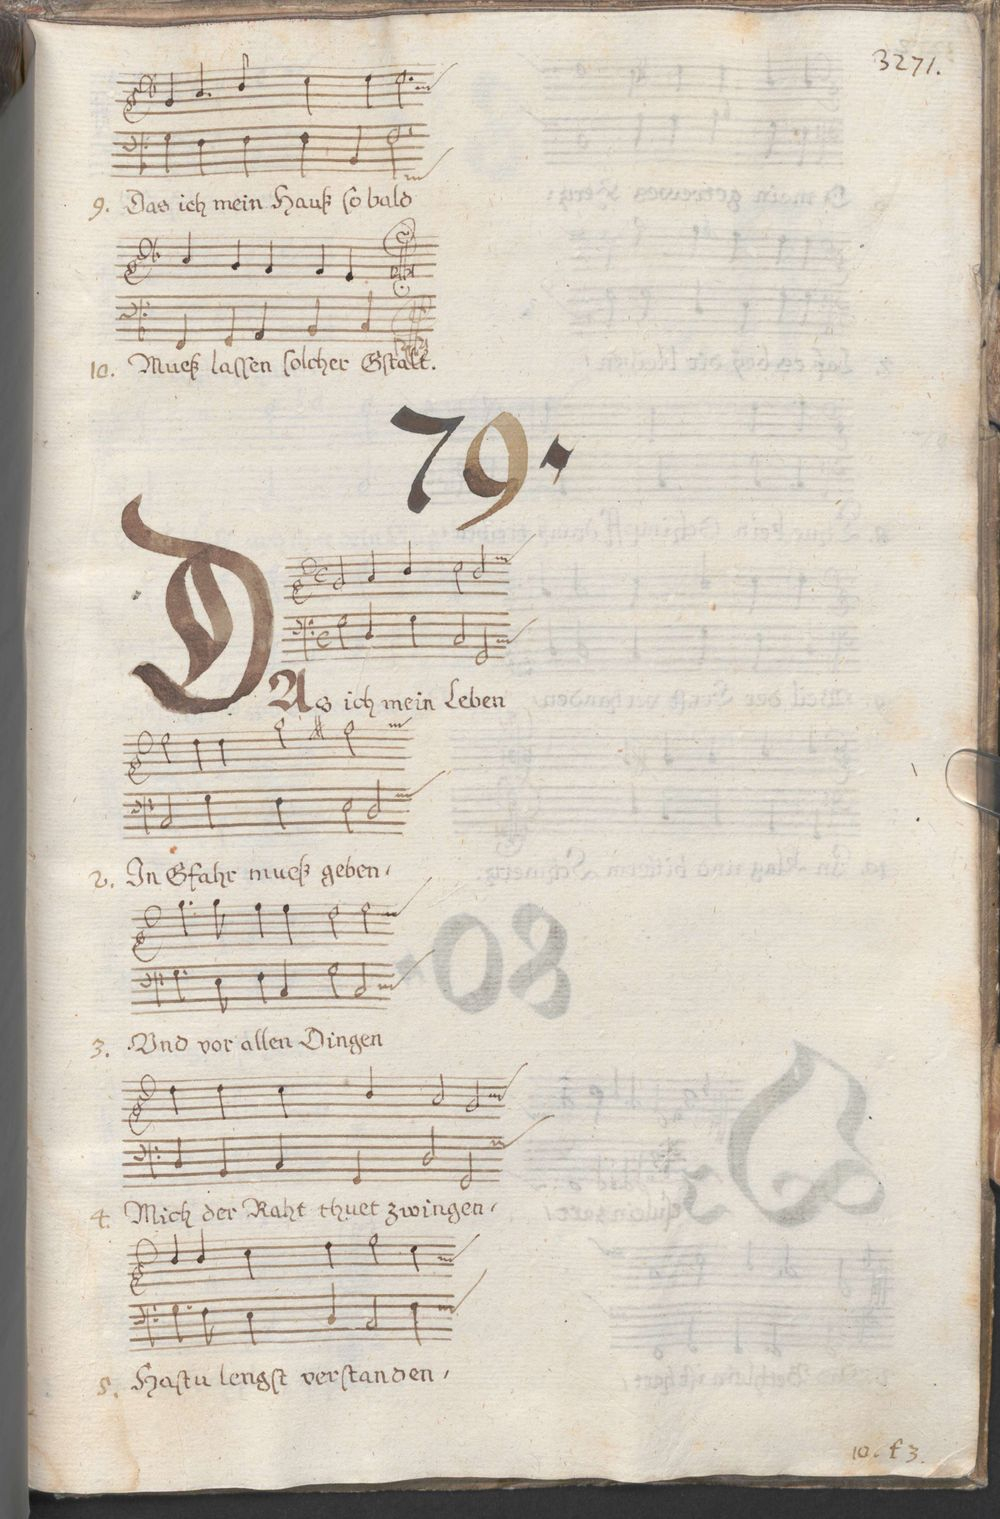 3271.
9. Das ich mein Hauß so bald
10. Mueß lassen solcher Gstalt.
79.
DAs ich mein Leben
2. In Gfahr mueß geben,
3. Vnd vor allen Dingen
4. Mich der Raht thuet zwingen,
5. Hastu lengst verstanden,
10. f 3.